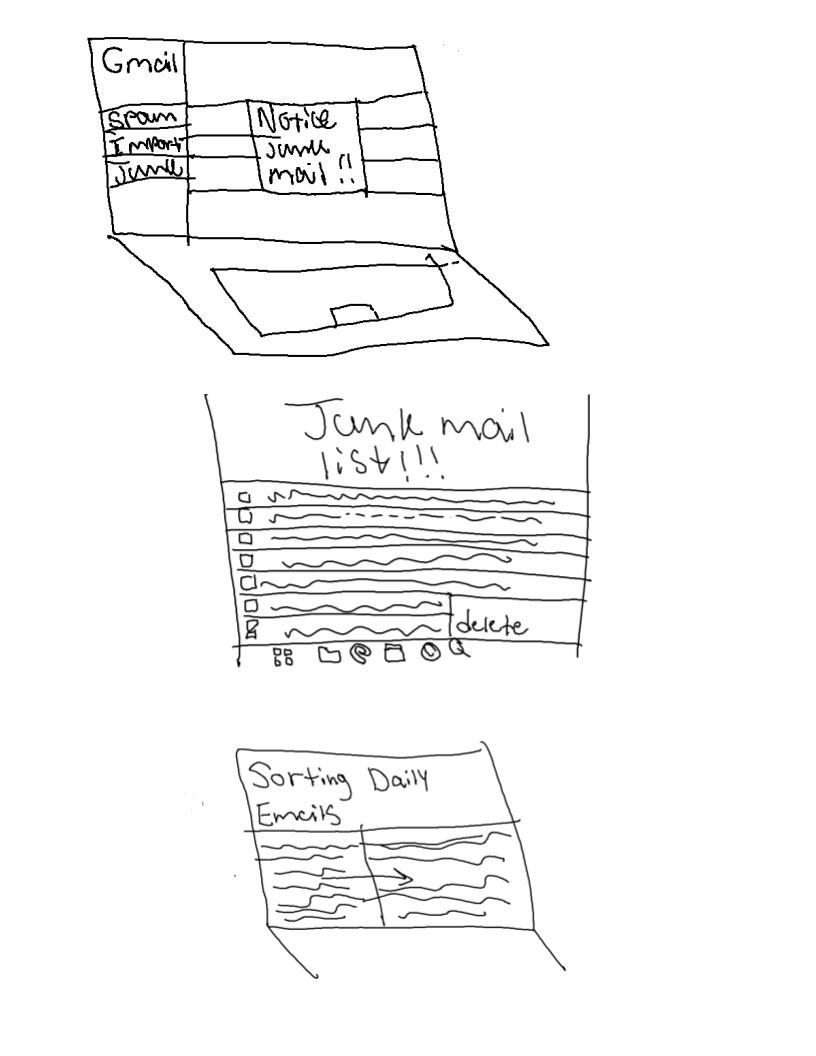 Gmail
Spam
Import
Junk
Notice
junk
mail!!
Junk mail
list!!!
delete
Sorting Daily
Emails